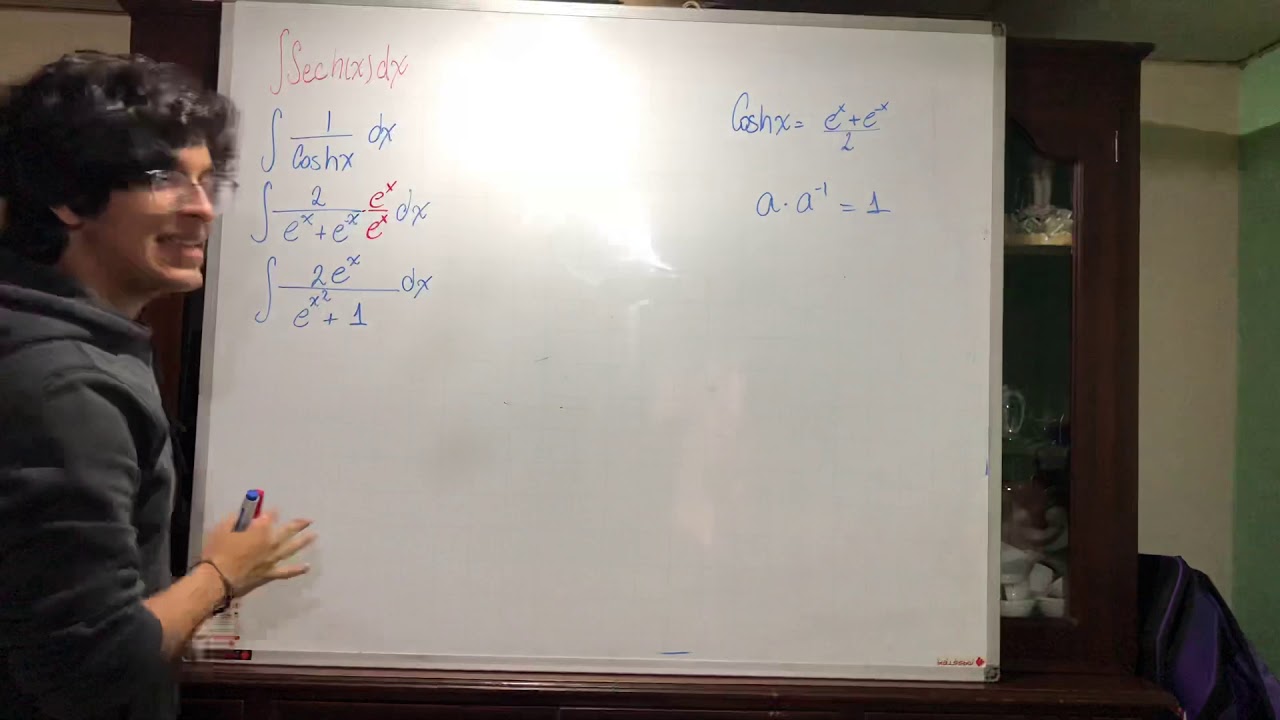 ∫ Sech(x) dx
∫ 1/Coshx dx
∫ 2/(e^x + e^-x) e^x/e^x dx
∫ 2e^x/(e^x^2 + 1) dx
Coshx = (e^x + e^-x)/2
a · a^-1 = 1